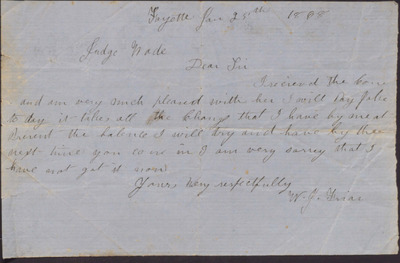 Fayette Jan 25th 1888
Judge Wade
Dear Sir
I recieved the Cow
and am very much pleased with her I will pay
to day it takes all the Change that I have by me at
present the balence I will try and have by the
next time you come in I am very sorrey that I
have not got it now
Yours very respectfully
W. G.